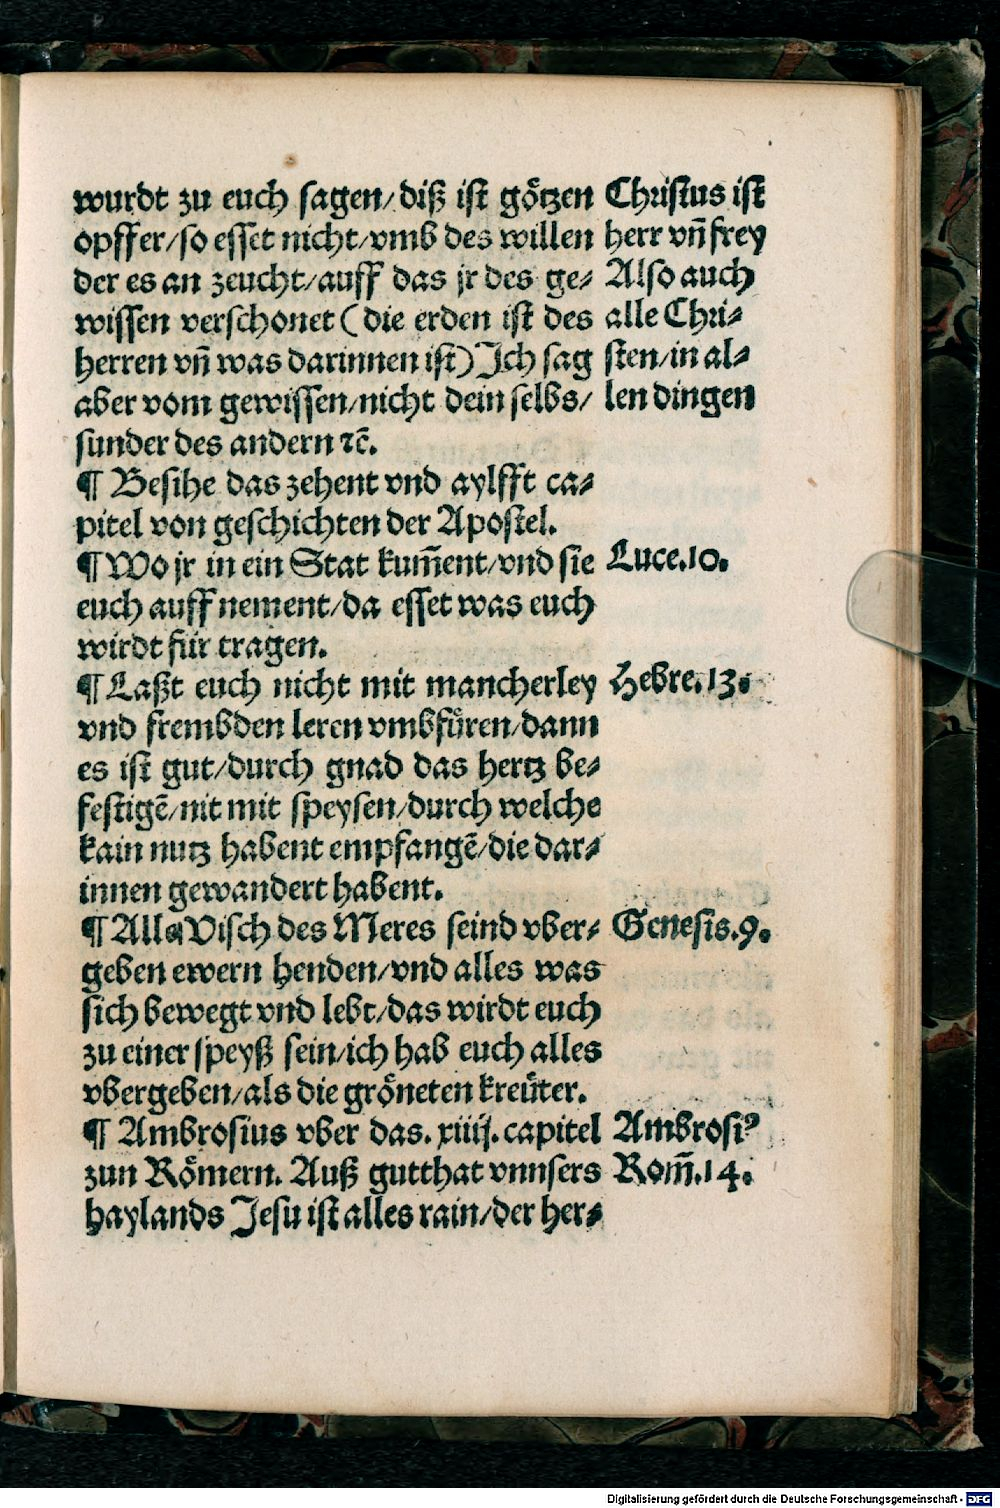 wurdt zu euch sagen/diß ist götzen
opffer/so esset nicht/vmb des willen
der es an zeucht/auff das jr des ge⸗
wissen verschonet (die erden ist des
herren vn̄ was darinnen ist) Ich sag
aber vom gewissen/nicht dein selbs/
sunder des andern ⁊c̄.
¶ Besihe das zehent vnd aylfft ca⸗
pitel von geschichten der Apostel.
¶ Wo jr in ein Stat kum̄ent/vnd sie
euch auff nement/da esset was euch
wirdt für tragen.
¶ Laßt euch nicht mit mancherley
vnd frembden leren vmbfüren/dann
es ist gut/durch gnad das hertz be⸗
festigē/nit mit speysen/durch welche
kain nutz habent empfangē/die dar⸗
innen gewandert habent.
¶ Alle Visch des Meres seind vber⸗
geben ewern henden/vnd alles was
sich bewegt vnd lebt/das wirdt euch
zu einer speyß sein/ich hab euch alles
vbergeben/als die gröneten kreüter.
¶ Ambrosius vber das. xiiij. capitel
zun Römern. Auß gutthat vnnsers
haylands Jesu ist alles rain/der her⸗
Christus ist
herr vn̄ frey
Also auch
alle Chri⸗
sten/in al⸗
len dingen
Luce.10.
Hebre.13.
Genesis.9.
Ambrosiꝰ
Rom̄.14.
Digitalisierung gefördert durch die Deutsche Forschungsgemeinschaft - DFG